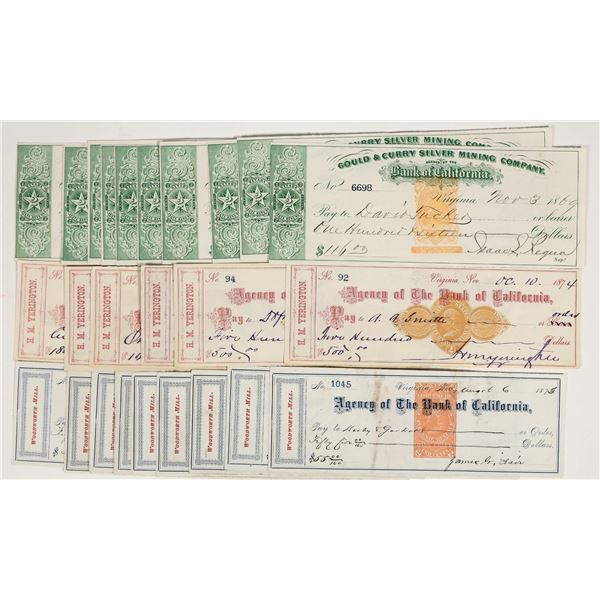 CURRY SILVER MINING COMP
GOULD & CURRY SILVER MINING COMPANY.
AGENCY OF THE
Bank of California.
No. 6698
Virginia, Nov 3 1869
Pay to David Tucker or bearer
One Hundred Sixteen Dollars
$116.00
Supt
H. M. YERINGTON.
H. M. YERINGTON.
H. M. YERINGTON.
H. M. YERINGTON.
No. 94
Agency of
Pay to
Five Hun
$500.00
H. M. YERINGTON.
No. 92
Virginia, Nev. Oc. 10. 1874
Agency of The Bank of California,
Pay to or order
Five Hundred Dollars.
$500.00
WOODWORTH MILL.
WOODWORTH MILL.
WOODWORTH MILL.
WOODWORTH MILL.
WOODWORTH MILL.
WOODWORTH MILL.
WOODWORTH MILL.
No. 1045
Virginia, Nev. August 6 187
Agency of The Bank of California,
Pay to or Order,
Fifty five 00/100 Dollars.
$55 00/100
James G. Fair